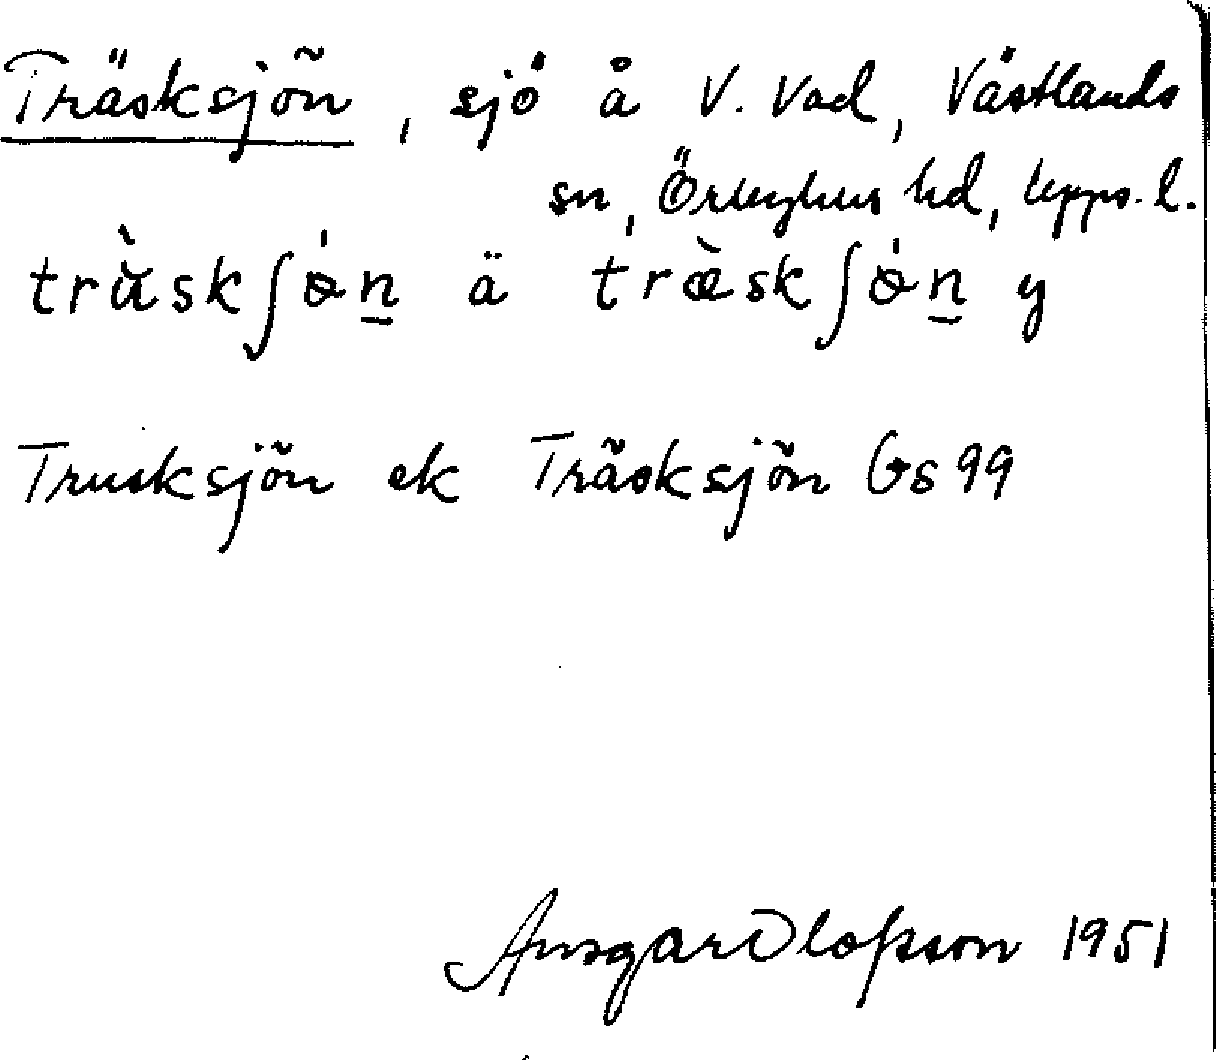 Träsksjön, sjö å V. Vad, Västlands
sn, Örbyhus hd, Upps. l.
trä̀skʃɵ́n̠ ä træ̀skʃɵ́n̠ y
Trusksjön ek Träsksjön Gs 99
Ansgar Olofsson 1951